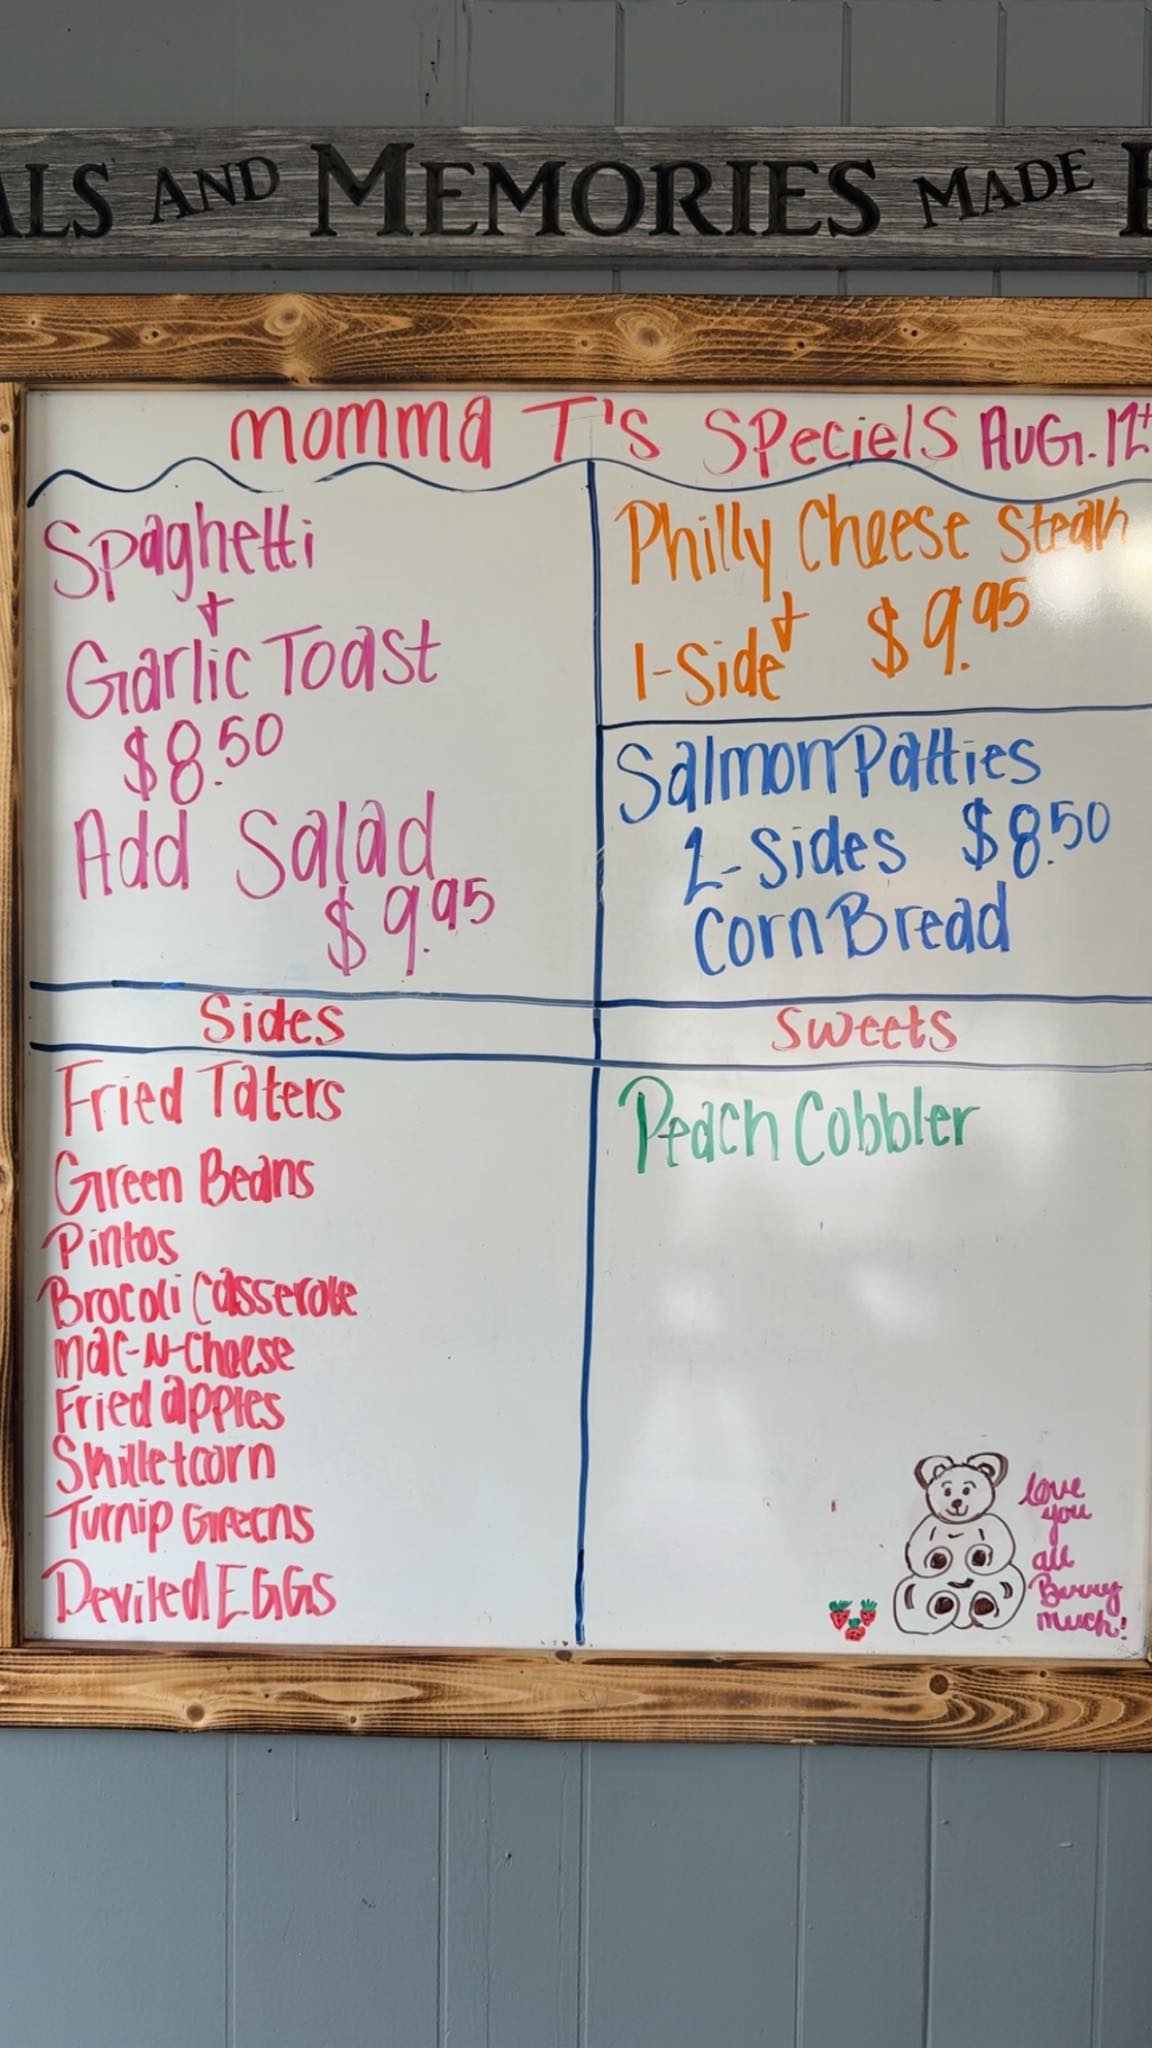 ALS AND MEMORIES MADE
momma T's Speciels AUG. 12t
Spaghetti
+
Garlic Toast
$8.50
Add Salad
$9.95
Philly Cheese Steak
+
1-Side $9.95
Salmon Patties
2-Sides $8.50
Corn Bread
Sides
Fried Taters
Green Beans
Pintos
Brocoli Casserole
Mac-N-Cheese
Fried apples
Skilletcorn
Turnip Greens
Deviled EGGS
Sweets
Peach Cobbler
love
you
all
Berry
much!